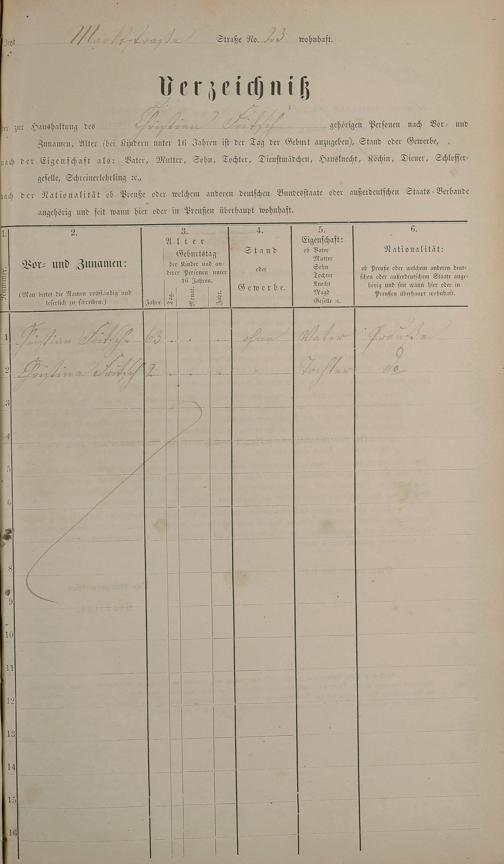 Marktstraße Straße No. 23 wohnhaft.
Verzeichniß
der zur Haushaltung des Christian Fritsch gehörigen Personen nach Vor- und
Zunamen, Alter (bei Kindern unter 16 Jahren ist der Tag der Geburt anzugeben), Stand oder Gewerbe,
nach der Eigenschaft als: Vater, Mutter, Sohn, Tochter, Dienstmädchen, Hausknecht, Köchin, Diener, Schlosser-
geselle, Schreinerlehrling ꝛc.,
nach der Nationalität ob Preuße oder welchem anderen deutschen Bundesstaate oder außerdeutschen Staats-Verbande
angehörig und seit wann hier oder in Preußen überhaupt wohnhaft.
1. 2. 3. 4. 5. 6.
Nummer.
Vor- und Zunamen:
(Man bittet die Namen vollständig und
leserlich zu schreiben.)
Alter
Geburtstag
der Kinder und an-
derer Personen unter
16 Jahren.
Jahre Tag. Monat. Jahr.
Stand
oder
Gewerbe.
Eigenschaft:
ob Vater
Mutter
Sohn
Tochter
Knecht
Magd
Geselle ꝛc.
Nationalität:
ob Preuße oder welchem anderen deut-
schen oder außerdeutschen Staate ange-
hörig und seit wann hier oder in
Preußen überhaupt wohnhaft.
1 Christian Fritsch 63 ohne Vater Preuße
2 Christina Fritsch Tochter do
3
4
5
6
8
9
10
11
12
13
14
15
16